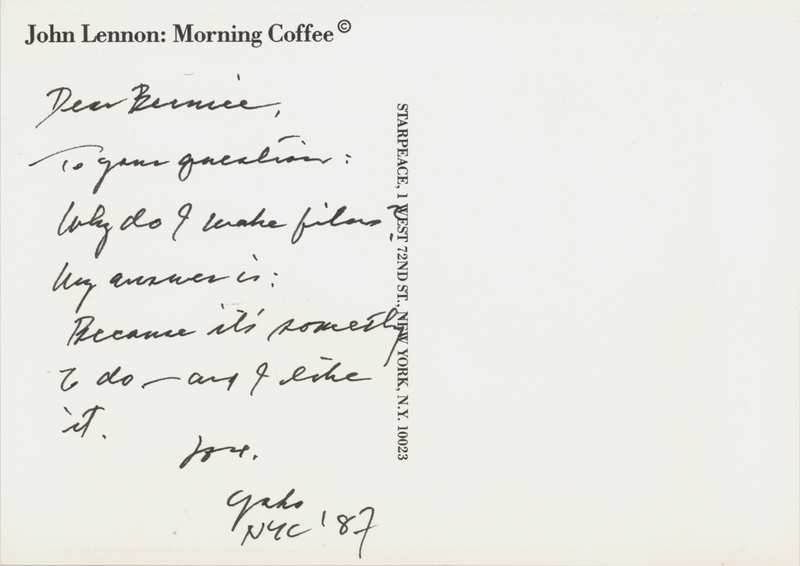 John Lennon: Morning Coffee©
Dear Bernice,
To your question:
Why do I make films?
My answer is:
Because it's something
to do — and I like
it.
love,
Yoko
NYC '87
STARPEACE, 1 WEST 72ND ST., NEW YORK, N.Y. 10023